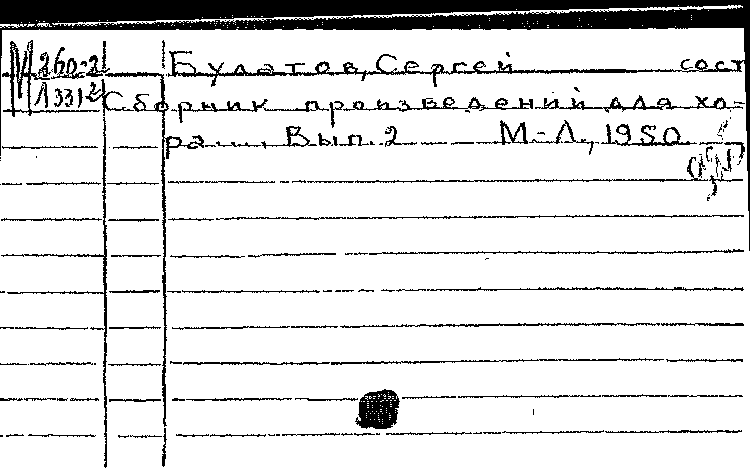 М 260-2 Булатов, Сергей сост
Л 3312 Сборник произведений для хо-
ра.... Вып. 2 М-Л., 1950